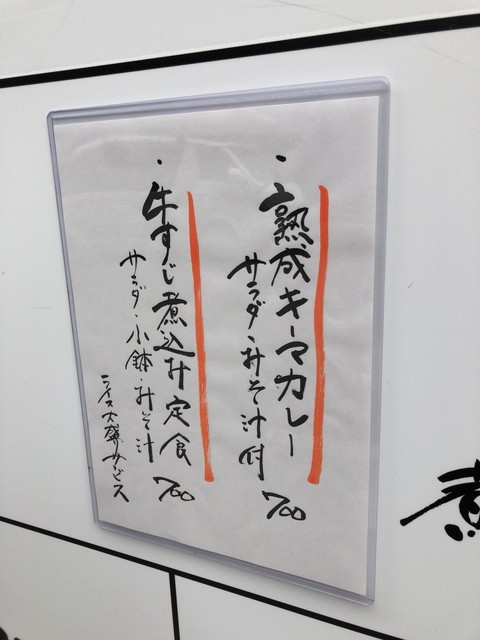 ・熟成キーマカレー
サラダ・みそ汁付 700
・牛すじ煮込み定食
サラダ・小鉢・みそ汁 700
ライス大盛サービス
煮